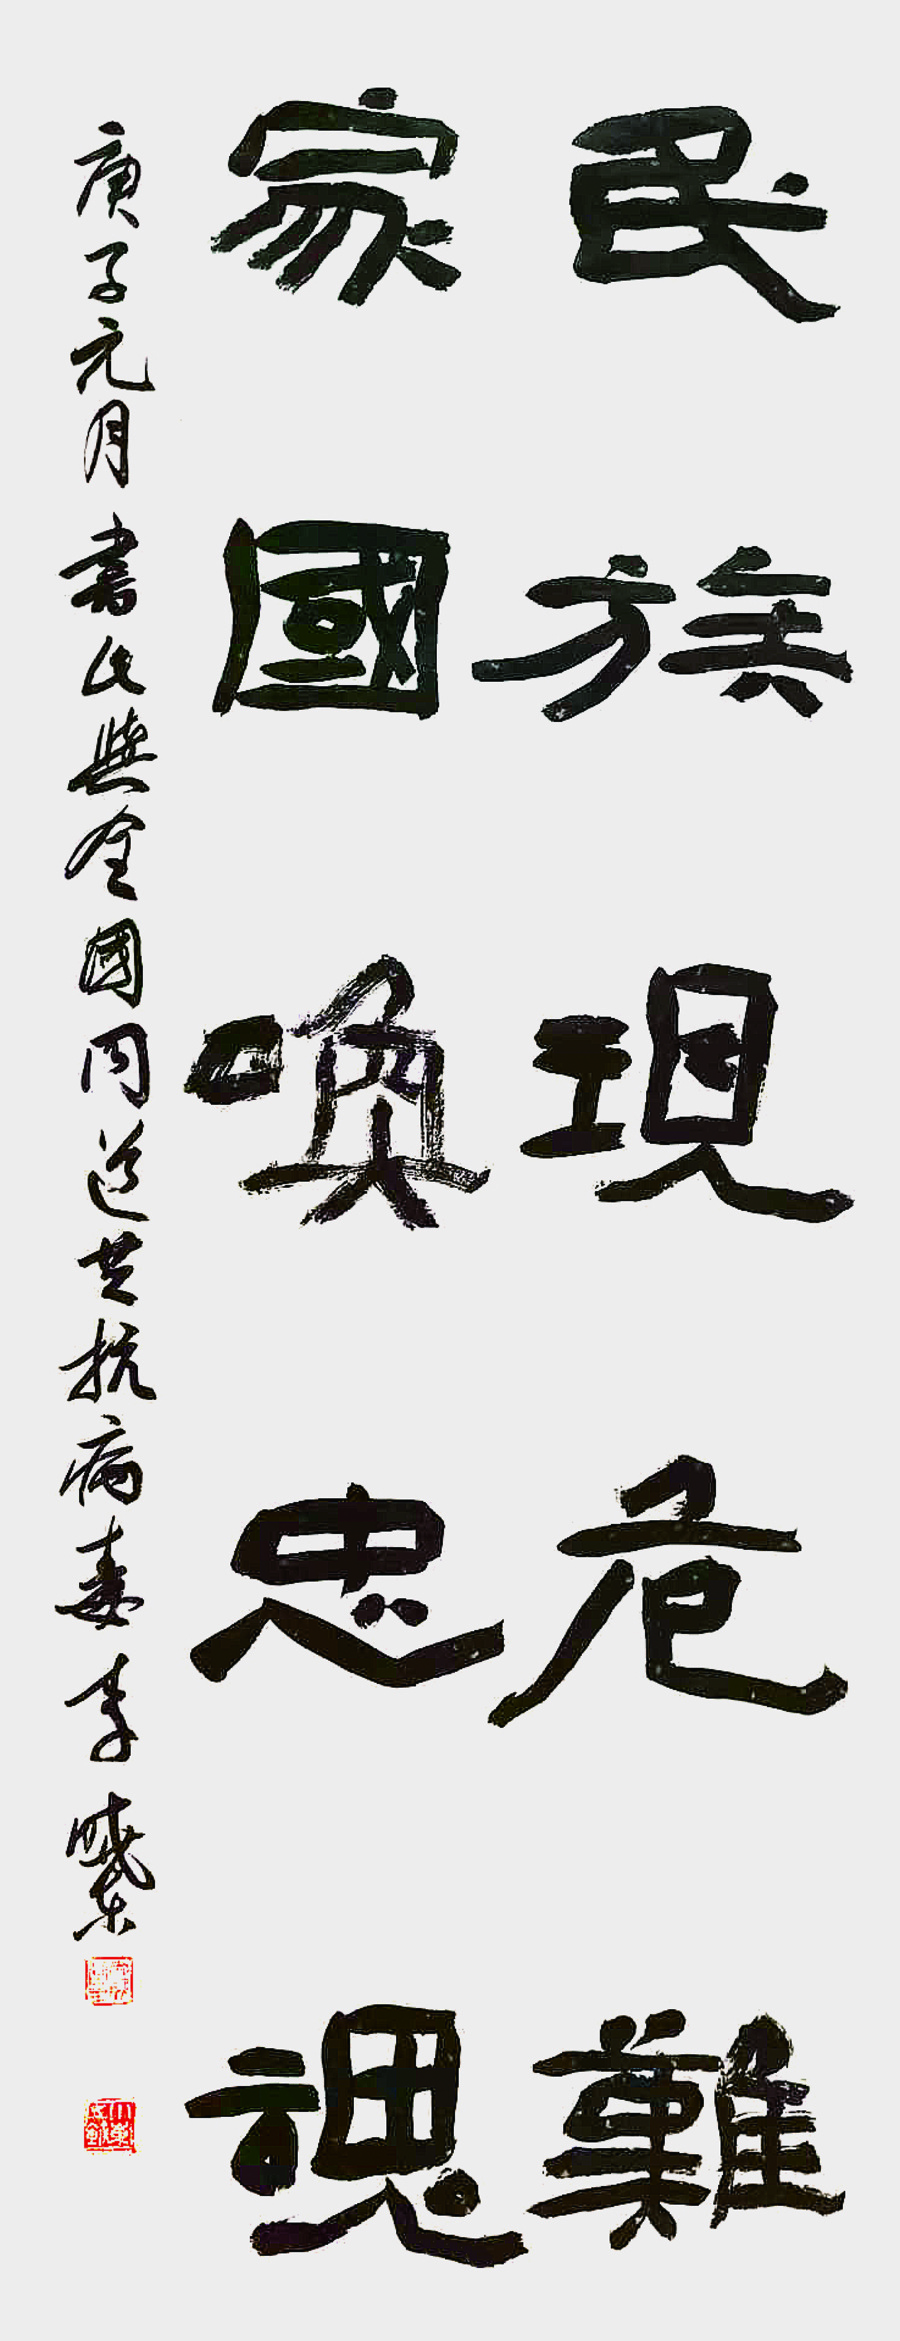 民族現危難
家國喚忠魂
庚子元月書此與全國同道共抗病毒李曉東